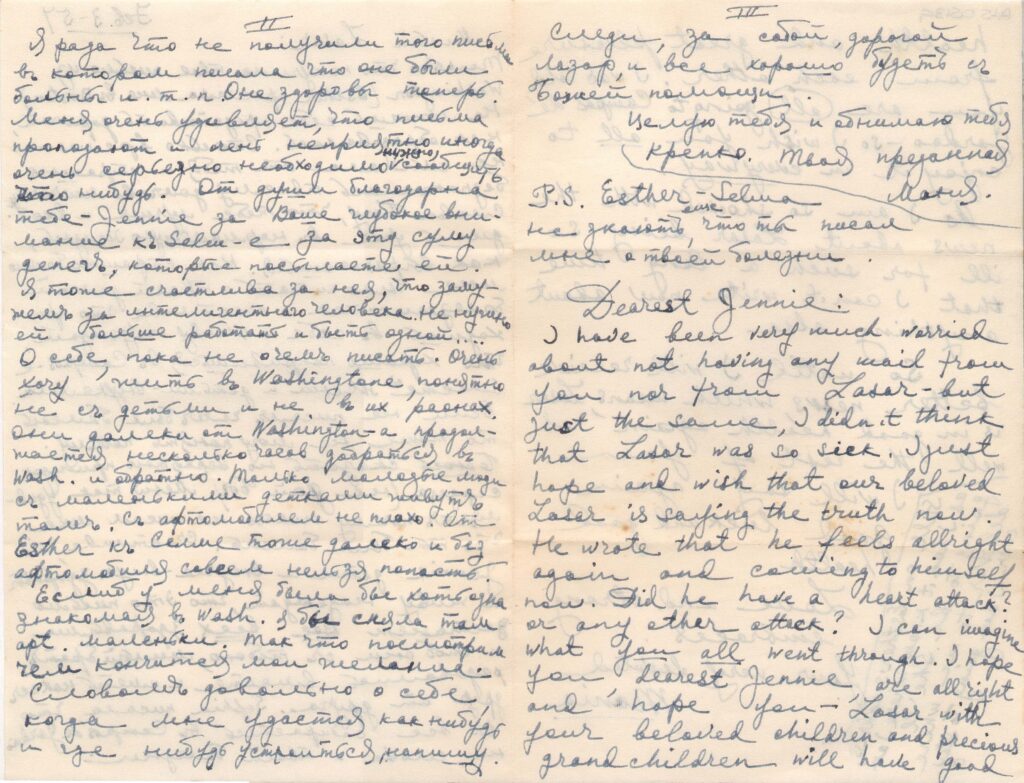 II
Я рада что не получили того письма
въ котором писала что оне были
больны и. т. п. Оне здоровы теперь.
Меня очень удивляет, что письма
пропозают и очень неприятно иногда
очень серьезно необходимо нужно сообщить
что нибудь. От души благодарна
тебе – Jennie за Ваше глубокое вни-
мание къ Selm-е за эту суму
денегъ, которые посылаете ей.
Я тоже счастлива за нея, что заму-
жемъ за интелигентного человека. Не нужно
ей больше работать и быть одной....
О себе, пока не очемъ писать. Очень
хочу жить въ Washingtone, понятно
не съ детьми и не въ их раонах.
они далеки от Washington-а, продол-
жается несколько часов добраться въ
Wash. и обратно. Только молодые люди
съ маленькими детками живутъ
тамъ. Съ афтомобилем не плохо. От
Esther къ Селме тоже далеко и без
афтомобиля совсем нельзя попасть.
Еслиб у меня была бы хоть одна
знакомая въ Wash. я бы сняла там
apt. маленьки. Так что посмотрим
чем кончится мои желания.
Словомъ довольно о себе,
когда мне удастся как нибудь
и где нибудь устроиться, напишу.
III
Следи, за собой, дорогой
Лазар, и все хорошо будеть съ
Божей помощи.
Целую тебя и обнимаю тебя
крепко. Твоя преданная
Маня.
P.S. Esther – Selma
не знают, еще что ты писал
мне о твоей болезни.
Dearest Jennie:
I have been very much worried
about not having any mail from
you nor from Lasar – but
just the same, I didn't think
that Lasar was so sick. I just
hope and wish that our beloved
Lasar is saying the truth now.
He wrote that he feels allright
again and coming to himself
now. Did he have a heart attack?
or any other attack? I can imagine
what you all went through. I hope
you, dearest Jennie, are all right
and hope you – Lasar with
your beloved children and precious
grandchildren will have good